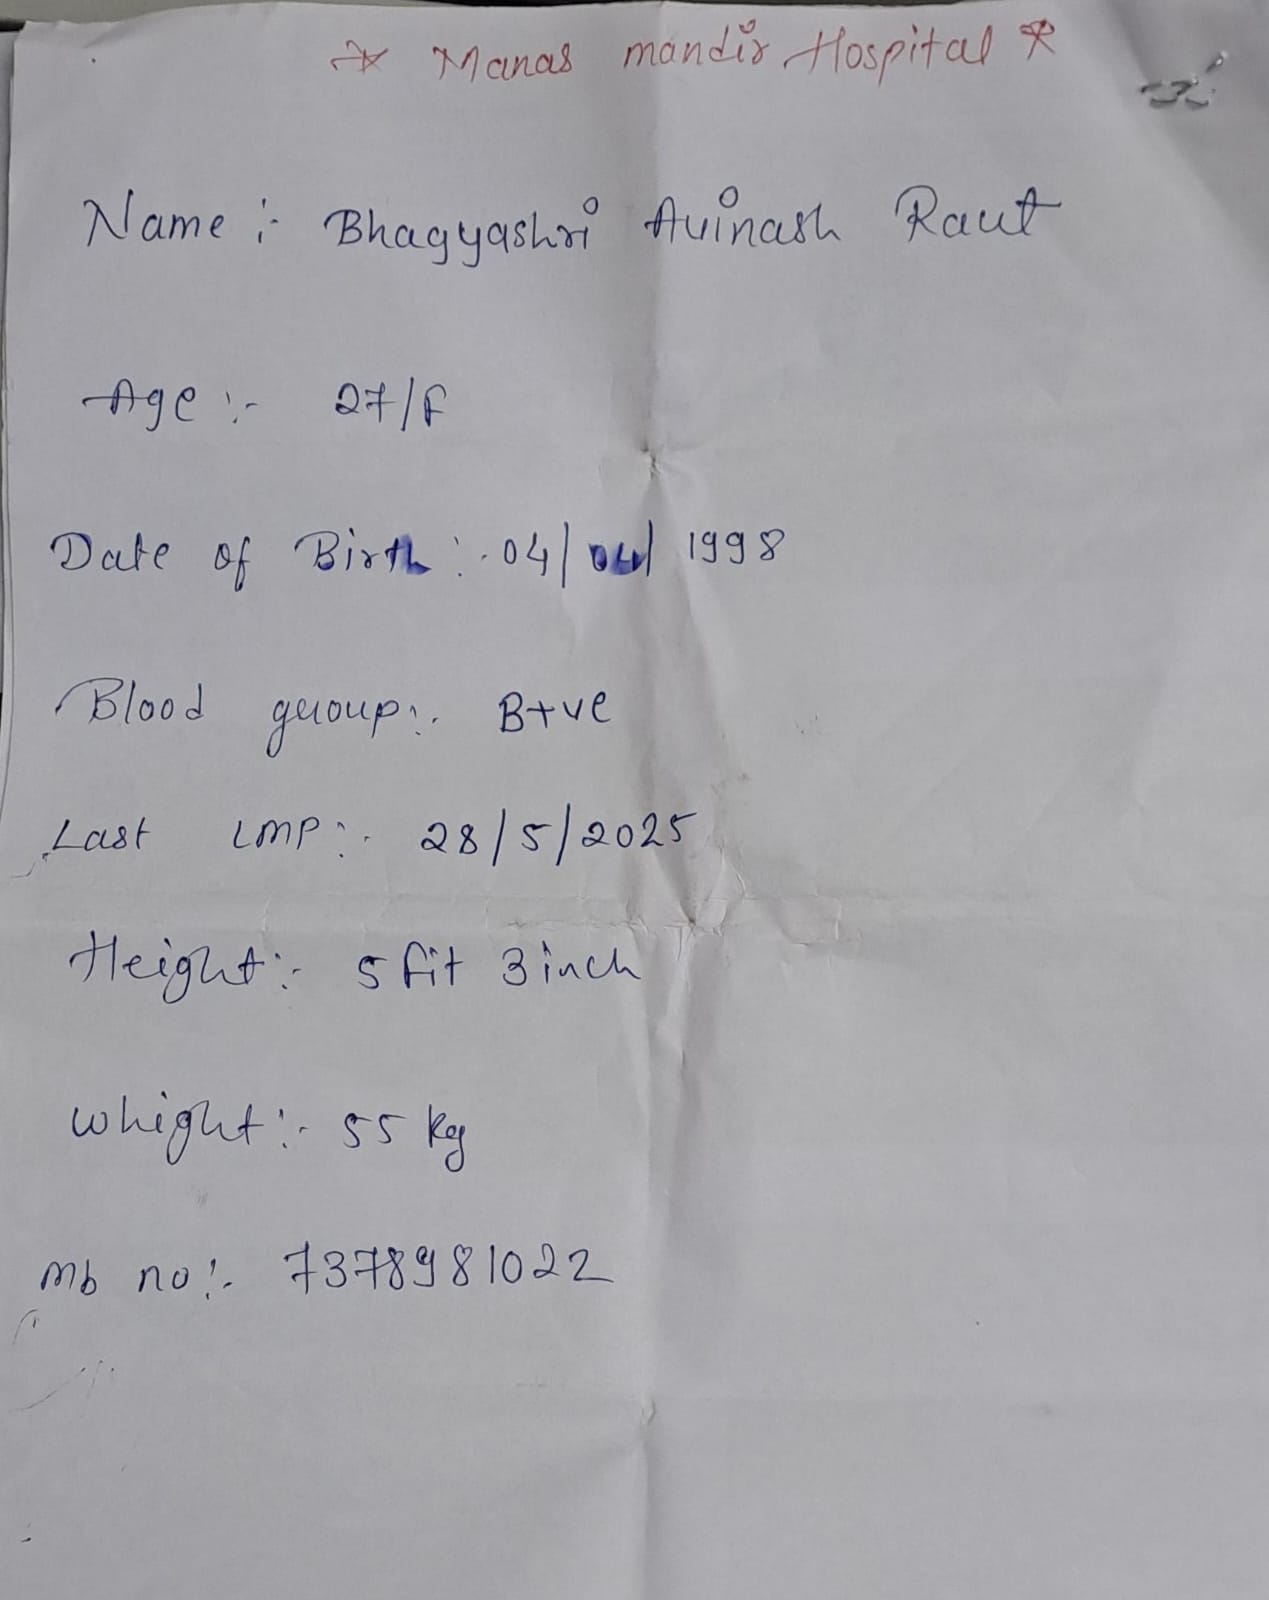 * Manas mandir Hospital *
Name :- Bhagyashri Avinash Raut
Age :- 27/F
Date of Birth :- 04/04/1998
Blood group :- B+ve
Last LMP :- 28/5/2025
Height :- 5 fit 3 inch
Whight :- 55 kg
Mb no :- 7378981022